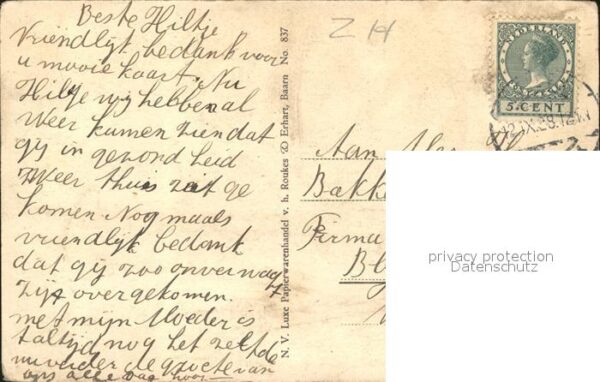 Beste Hiltje
Vriendlijk bedank voor
u mooie kaart. Nu
Hiltje wij hebben al
Weer kunnen zien dat
gij in gezond heid
Weer thuis zat ge
komen Nog maals
vriendlijk bedank
dat gij zoo onverwag
zijt overgekomen.
met mijn Moeder is
taltijd nog het zelfde
nu verder de groete van
ons alle dag hoor
N. V. Luxe Papierwarenhandel v. h. Roukes & Erhart, Baarn No. 837
Z H
NEDERLAND
5 CENT
12.IX.28.12
Aan
Bakke
Firma
Bl
privacy protection
Datenschutz